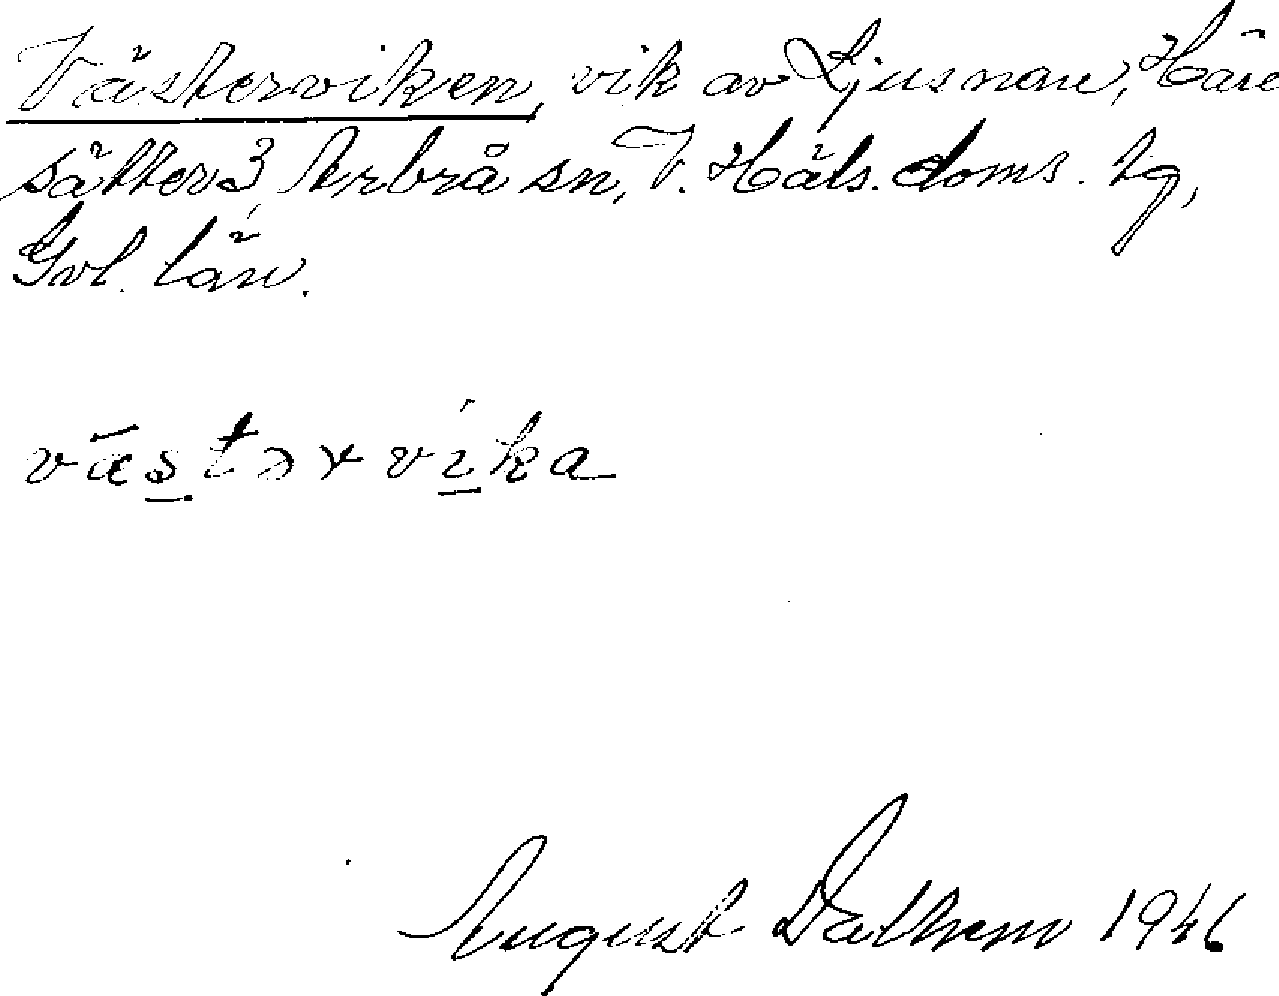 Västerviken, vik av Ljusnan, Häre
sätter 3, Arbrå sn, V. Häls. doms. hg,
Gvl. län.
væstərvika
August Dalhem 1946